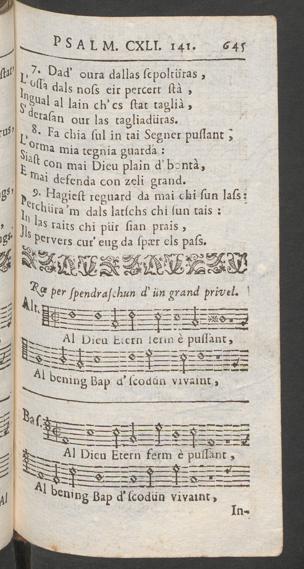 PSALM. CXLI. 141. 645
7. Dad' oura dallas sepoltüras,
L'ossa dals noss eir percert stà,
Ingual al lain ch'es stat taglià,
S'derasan our las tagliadüras.
8. Fa chia sul in tai Segner pussant,
L'orma mia tegnia guarda:
Siast con mai Dieu plain d'bontà,
E mai defenda con zeli grand.
9. Hagiest reguard da mai chi sun lass:
Perchüra'm dals latschs chi sun tais:
In las raits chi pür sian prais,
Ils pervers cur'eug da spær els pass.
Ræ per spendraschun d'ün grand privel.
Alt.
Al Dieu Etern ferm è pussant,
Al bening Bap d'scodün vivaint,
Bas.
Al Dieu Etern ferm è pussant,
Al bening Bap d'scodün vivaint,
In-